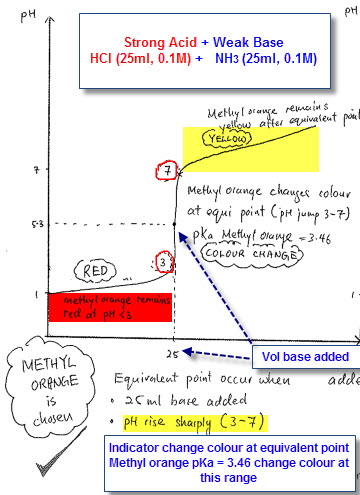 pH
pH
Strong Acid + Weak Base
HCl (25ml, 0.1M) + NH3 (25ml, 0.1M)
Methyl orange remains
yellow after equivalent point
YELLOW
7
7
Methyl orange changes colour
at equi point (pH jump 3-7)
pKa Methyl Orange = 3.46
COLOUR CHANGE
5.3
RED
3
1
1
methyl orange remains
red at pH <3
Vol base added
25
METHYL
ORANGE
is
chosen
Equivalent point occur when
adde
• 25ml base added
• pH rise sharply (3-7)
Indicator change colour at equivalent point
Methyl orange pKa = 3.46 change colour at
this range